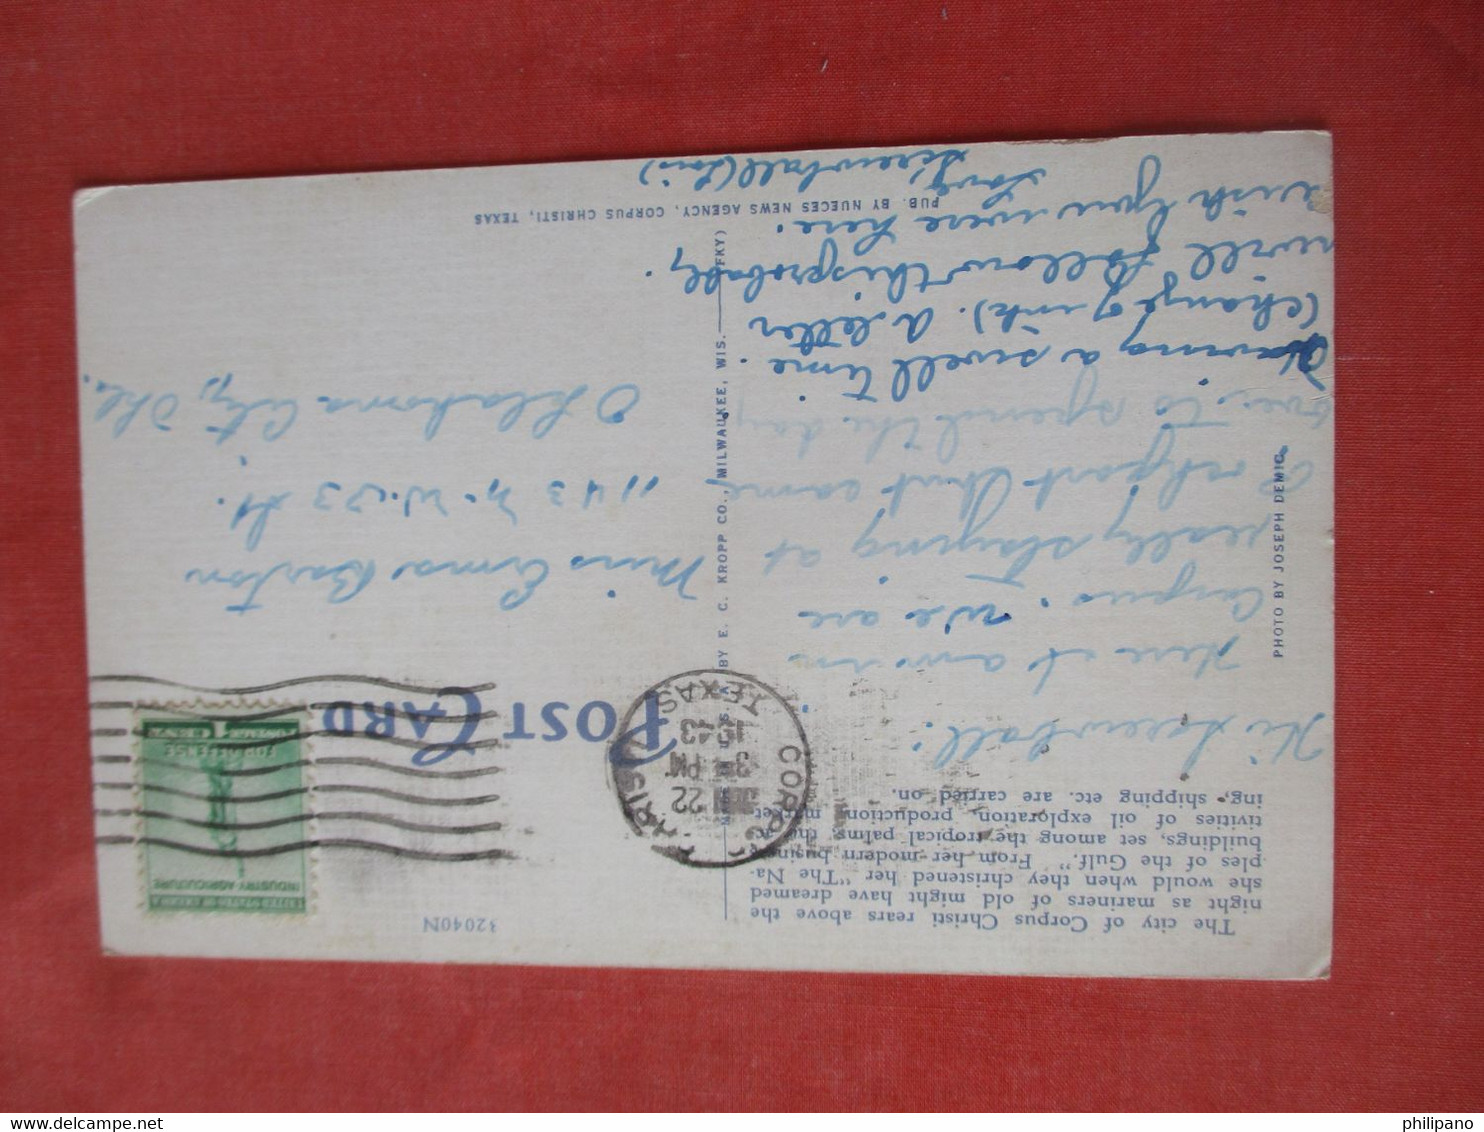 The city of Corpus Christi rears above the
night as mariners of old might have dreamed
she would when they christened her "The Na-
ples of the Gulf." From her modern business
buildings, set among the tropical palms the ac-
tivities of oil exploration, production, market-
ing, shipping etc. are carried on.
Hi Screwball:
Here I am in
Corpus. We are
really staying at
Rockport that came
over to spend the day
Having a swell time.
(change of ink). A letter
will follow this probably.
wish you were here.
Love,
Screwball (Lois)
PHOTO BY JOSEPH DEMIC
PUB. BY NUECES NEWS AGENCY, CORPUS CHRISTI, TEXAS
MADE IN U. S. A. BY E. C. KROPP CO., MILWAUKEE, WIS.
FKY)
32040N
POST CARD
CORPUS CHRISTI
22
3 PM
1943
TEXAS
UNITED STATES OF AMERICA
INDUSTRY AGRICULTURE
FOR DEFENSE
POSTAGE 1 CENT
Miss Erma Barton
1143 N. W. 33 St.
Oklahoma City, Okla.
delcampe.net
philipano